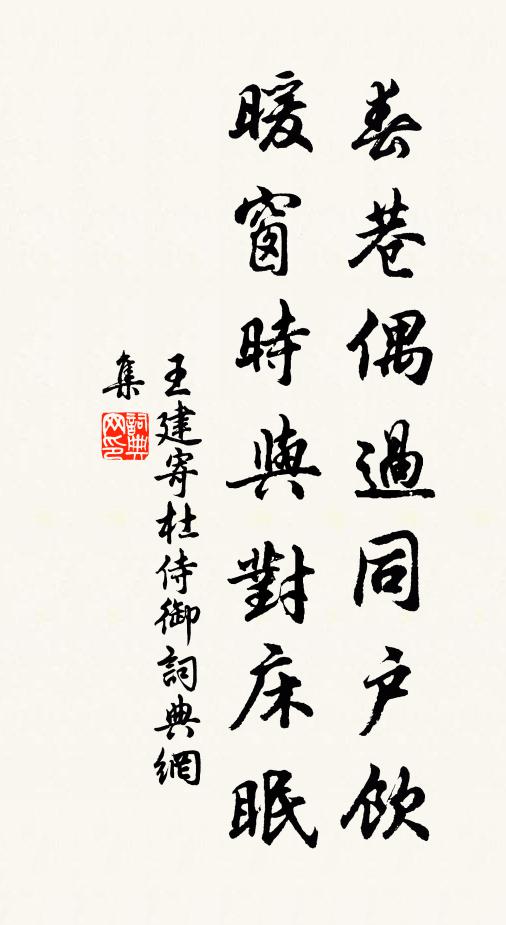 春巷偶過同户飲
暖窗時與對床眠
王建寄杜侍御詞典網
集
詞典
网印